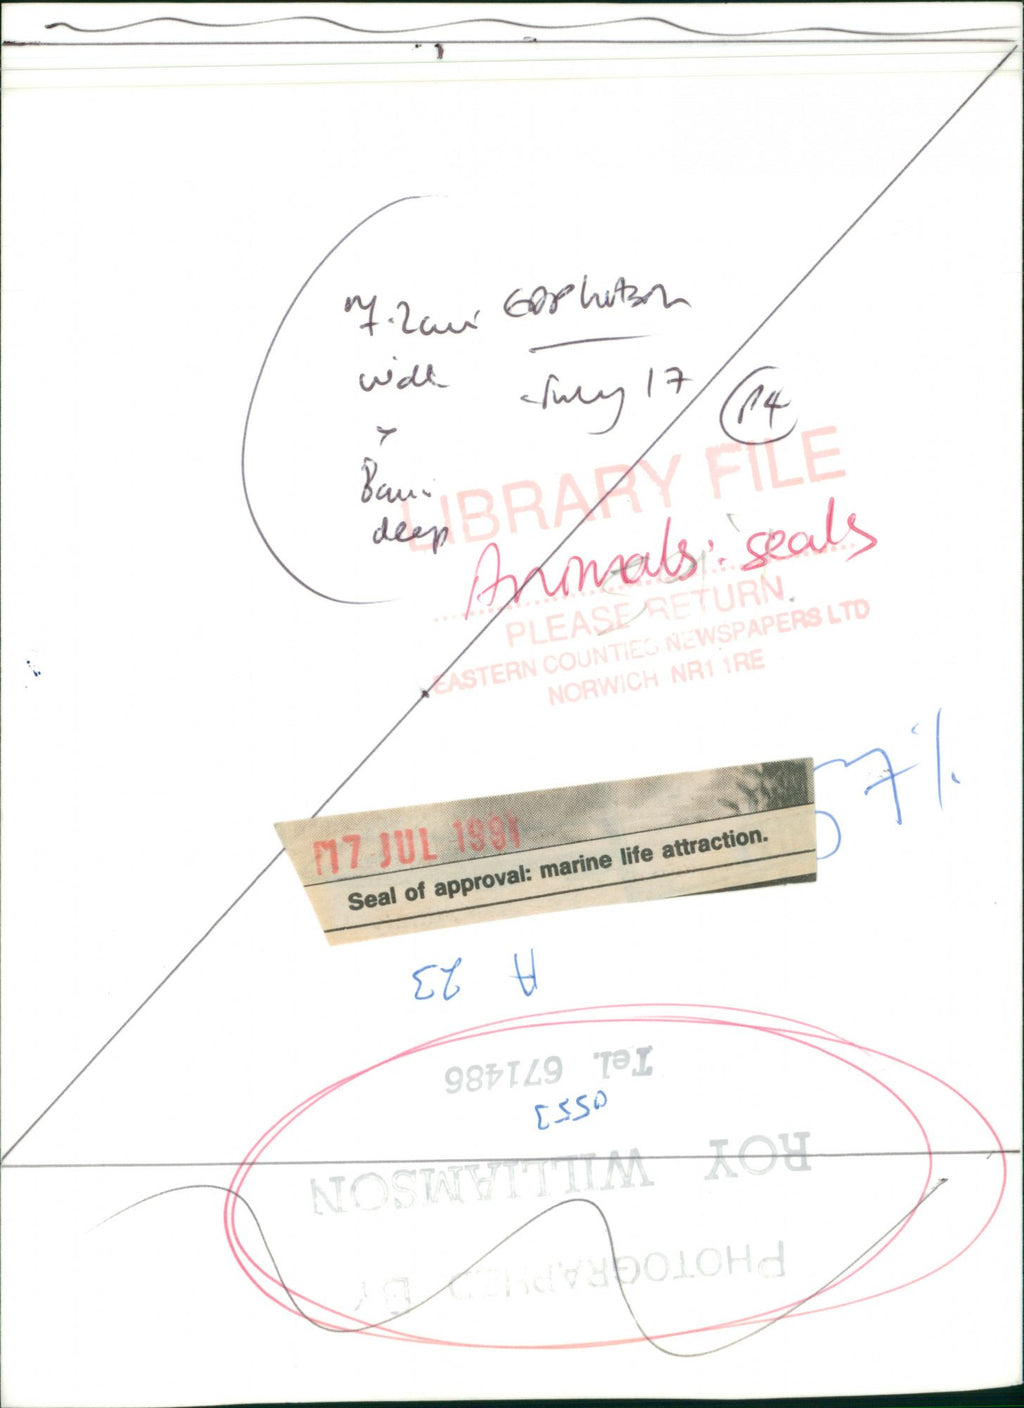 7.2cm
wide
x
8cm
deep
July 17
P4
LIBRARY FILE
Animals: seals
PLEASE RETURN
EASTERN COUNTIES NEWSPAPERS LTD
NORWICH NR1 1RE
7%
17 JUL 1991
Seal of approval: marine life attraction.
A 23
PHOTOGRAPHED BY
ROY WILLIAMSON
0553
Tel. 671486